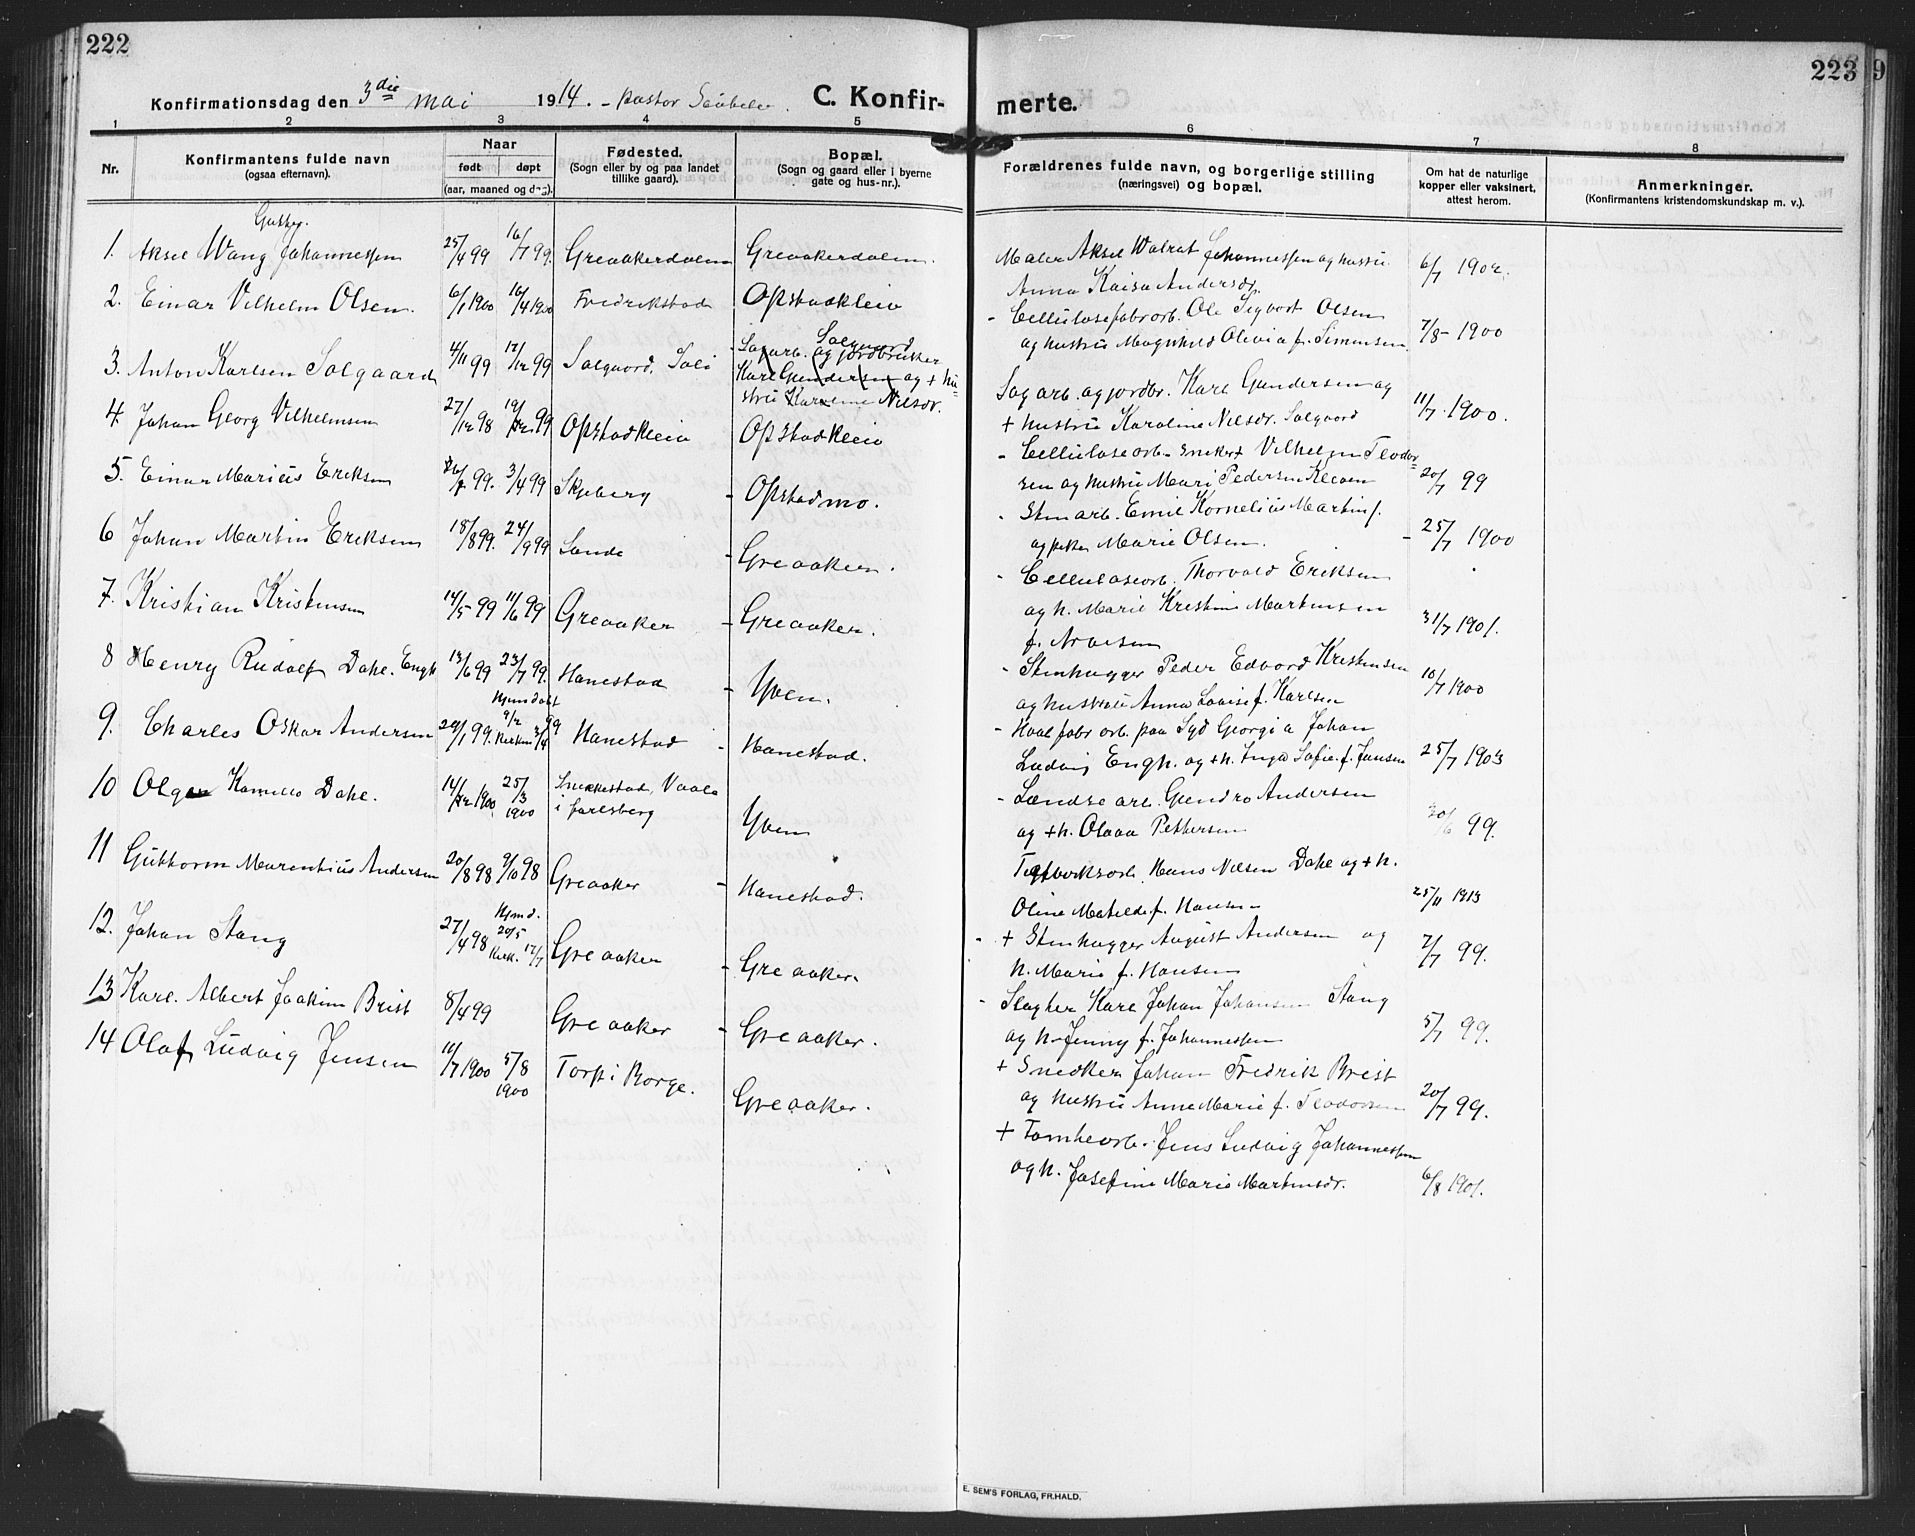 222
223
9
Konfirmationsdag den 3die mai 1914. - pastor
C. Konfir-
merte.
1 2 3 4 5 6 7 8
Nr.
Konfirmantens fulde navn
(ogsaa efternavn).
Naar
født døpt
(aar, maaned og dag).
Fødested.
(Sogn eller by og paa landet
tillike gaard).
Bopæl.
(Sogn og gaard eller i byerne
gate og hus-nr.).
Forældrenes fulde navn, og borgerlige stilling
(næringsvei) og bopæl.
Om hat de naturlige
kopper eller vaksinert,
attest herom.
Anmerkninger.
(Konfirmantens kristendomskundskap m. v.).
1. Aksel Wang Johannessen 25/4 99 16/7 99. Greaakerdalen Greaakerdalen.
Maler Aksel Walrat Johannessen og hustru
Anna Kaisa Andersdr. 6/7 1902.
2. Einar Vilhelm Olsen. 6/1 1900 16/4 1900 Fredrikstad Opstadkleiv
- Cellulosefabrarb. Ole Sigvart Olsen
og hustru Magnhild Olivia f. Simensen. 7/8 - 1900
3. Anton Karlsen Solgaard 4/11 99 17/12 99 Solgaard, Soli Solgaard
Sagarb. og jordbruker
Karl Gundersen og + hu-
stru Karoline Nilsdr.
Sagarb. og jordbr. Karl Gundersen og
+ hustru Karoline Nilsdr. Solgaard 11/7 1900.
4. Johan Georg Vilhelmsen 27/12 98 19/2 99 Opstadkleiv Opstadkleiv
- Celluloseorb. snekker Vilhelm Teodor
sen og hustru Mari Pedersen Kleven 20/7 99
5. Einar Marius Eriksen 26/2 99. 3/4 99 Skjeberg - Opstadmo.
- Stenarb. Emil Kornelius Martin f.
og Marie Olsen. - 25/7 1900
6 Johan Martin Eriksen 18/8 99. 24/9 99 Sande - Greaaker.
- Celluloseorb. Thorvald Eriksen
og h. Marie Kristine Martinsen
f. Arvesen 31/7 1901.
7. Kristian Kristensen 14/5 99 11/6 99 Greaaker - Greaaker.
- Stenhugger Peder Edvard Kristensen
og hustru Anna Lovise f. Karlsen 10/7 1900
8 Henry Rudolf Dahl. Engh 13/6 99 23/7 99. Hanestad - Yven.
- Hvalfabr arb. paa Syd Georgia Johan
Ludvig Engh. og + h. Inga Sofie f. Jansen 25/7 1903
9. Charles Oskar Andersen 29/1 99. Hjemdøbt 9/2 99 Kirken 3/4 Hanestad - Hanestad.
- Lændse arb. Gundro Andersen
og + h. Olava Pettersen 30/6 99.
10 Olga Kamilla Dahl. 14/2 1900. 25/3 1900 Snekkestad, Vaale
i Jarlsberg Yven
Teglverksorb. Hans Nilsen Dahl og + h.
Oline Matilde f. Hansen 25/11 1913
11 Guttorm Marentius Andersen 20/8 98 9/10 98 Greaaker - Hanestad.
- + Stenhugger August Andersen og
h. Marie f. Hansen 7/7 99.
12. Johan Stang 27/4 98 Hjemd. 20/5 Kirk. 17/7 Greaaker - Greaaker.
- Slagter Karl Johan Johansen Stang
og h. Jenny f. Johannessen 5/7 99.
13 Karl. Albert Joakim Brist 8/4 99 Greaaker - Greaaker.
+ Snedker Johan Fredrik Brist
og hustru Anne Marie f. Teodorsen 20/7 99.
14 Olaf Ludvig Jensen 10/7 1900 5/8 1900 Torp i Borge. Greaaker.
+ Tomtearb. Jens Ludvig Johannessen
og h. Josefine Marie Martinsdr. 6/8 1901.
E. SEM'S FORLAG, FR.HALD.